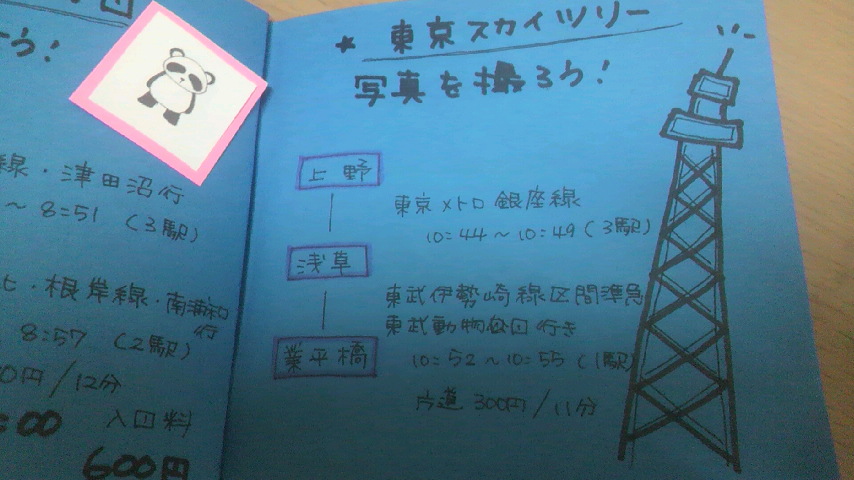 う!
線・津田沼行
～ 8:51 (3駅)
・根岸線・南浦和
行
8:57 (2駅)
0円/12分
:00 入園料
600円
★ 東京スカイツリー
写真を撮ろう!
上野
東京メトロ 銀座線
10:44～10:49 (3駅)
浅草
東武伊勢崎線区間準急
東武動物公園行き
業平橋
10:52～10:55 (1駅)
片道 300円/11分